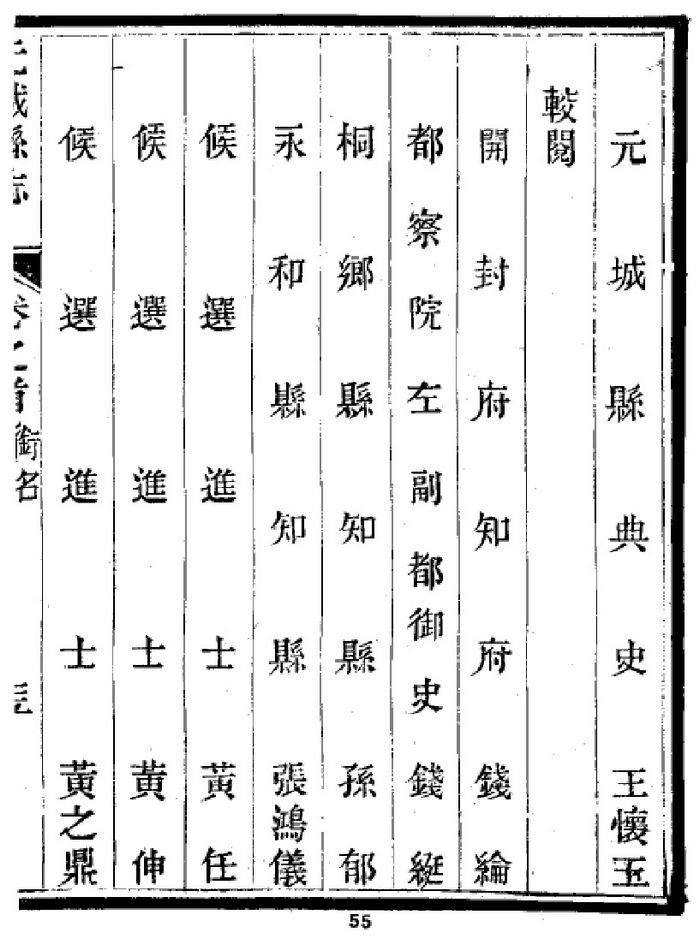 元城縣典史王懷玉
較閱
開封府知府錢綸
都察院左副都御史錢綎
桐鄉縣知縣孫郁
永和縣知縣張鴻儀
候選進士黃任
候選進士黃伸
候選進士黃之鼎
元城縣志
卷之首
銜名
三
55